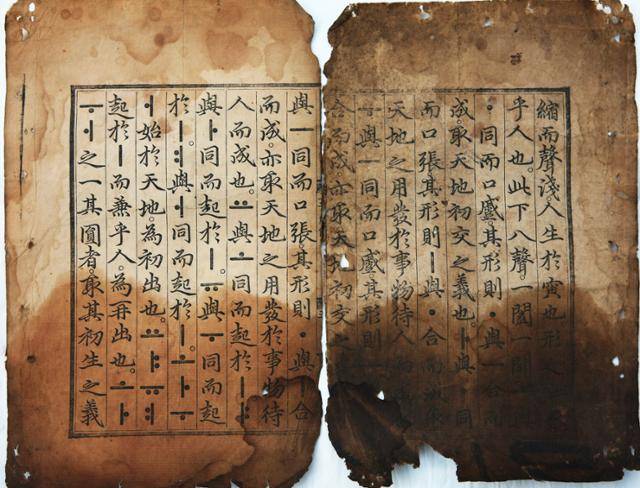 縮而聲淺。人生於寅也。形之
乎人也。此下八聲。一闔一闢
ㆍ同而口蹙。其形則ㆍ與ㅡ合而
成。取天地初交之義也。ㅏ與ㆍ同
而口張。其形則ㅣ與ㆍ合而成
天地之用發於事物待人而
ㅜ與ㅡ同而口蹙。其形則
合而成。亦取天地初交之
與ㅡ同而口張。其形則ㆍ與ㅣ合
而成。亦取天地之用發於事物待
人而成也。ㅛ與ㅗ同而起於ㅣ。ㅑ
與ㅏ同而起於ㅣ。ㅠ與ㅜ同而起
於ㅣ。ㅕ與ㅓ同而起於ㅣ。ㅗㅏㅜ
ㅓ始於天地。為初出也。ㅛㅑㅠㅕ
起於ㅣ而兼乎人。為再出也。ㅗㅏ
ㅜㅓ之一其圓者。取其初生之義